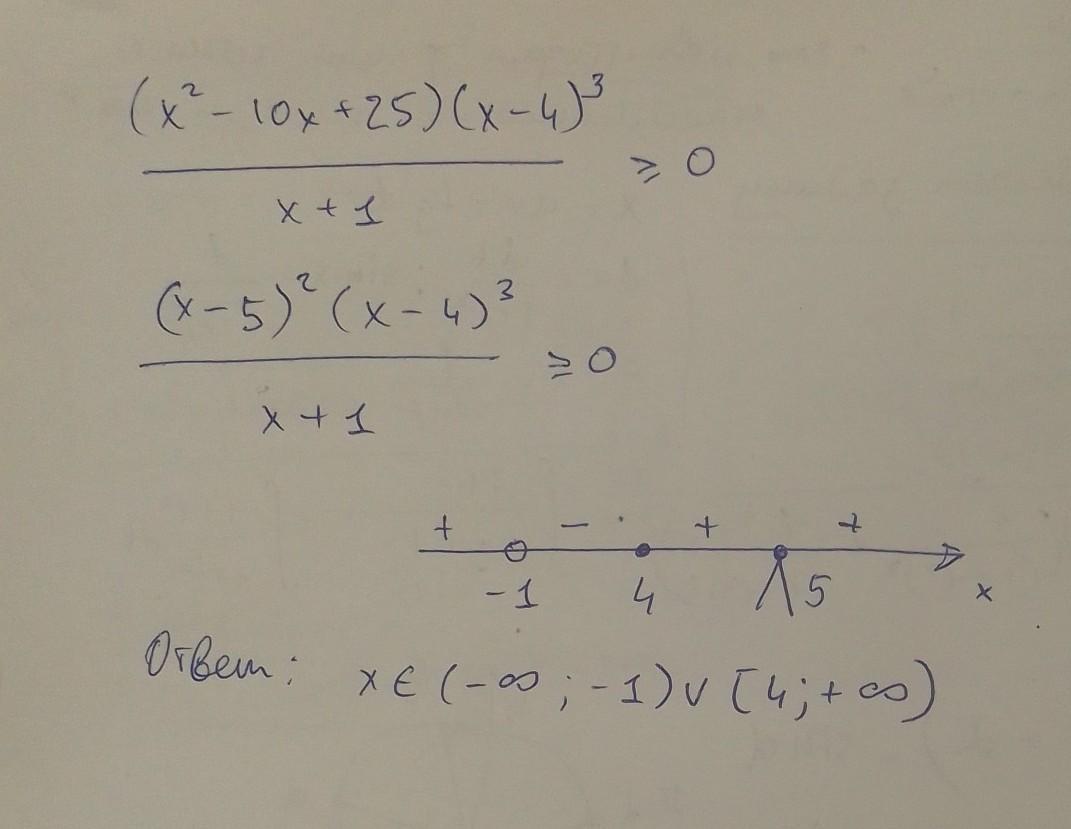 (x² - 10x + 25)(x - 4)³
x + 1
≥ 0
(x - 5)² (x - 4)³
x + 1
≥ 0
+ - + +
-1 4 5 x
Ответ: x ∈ (-∞; -1) ∨ [4; +∞)